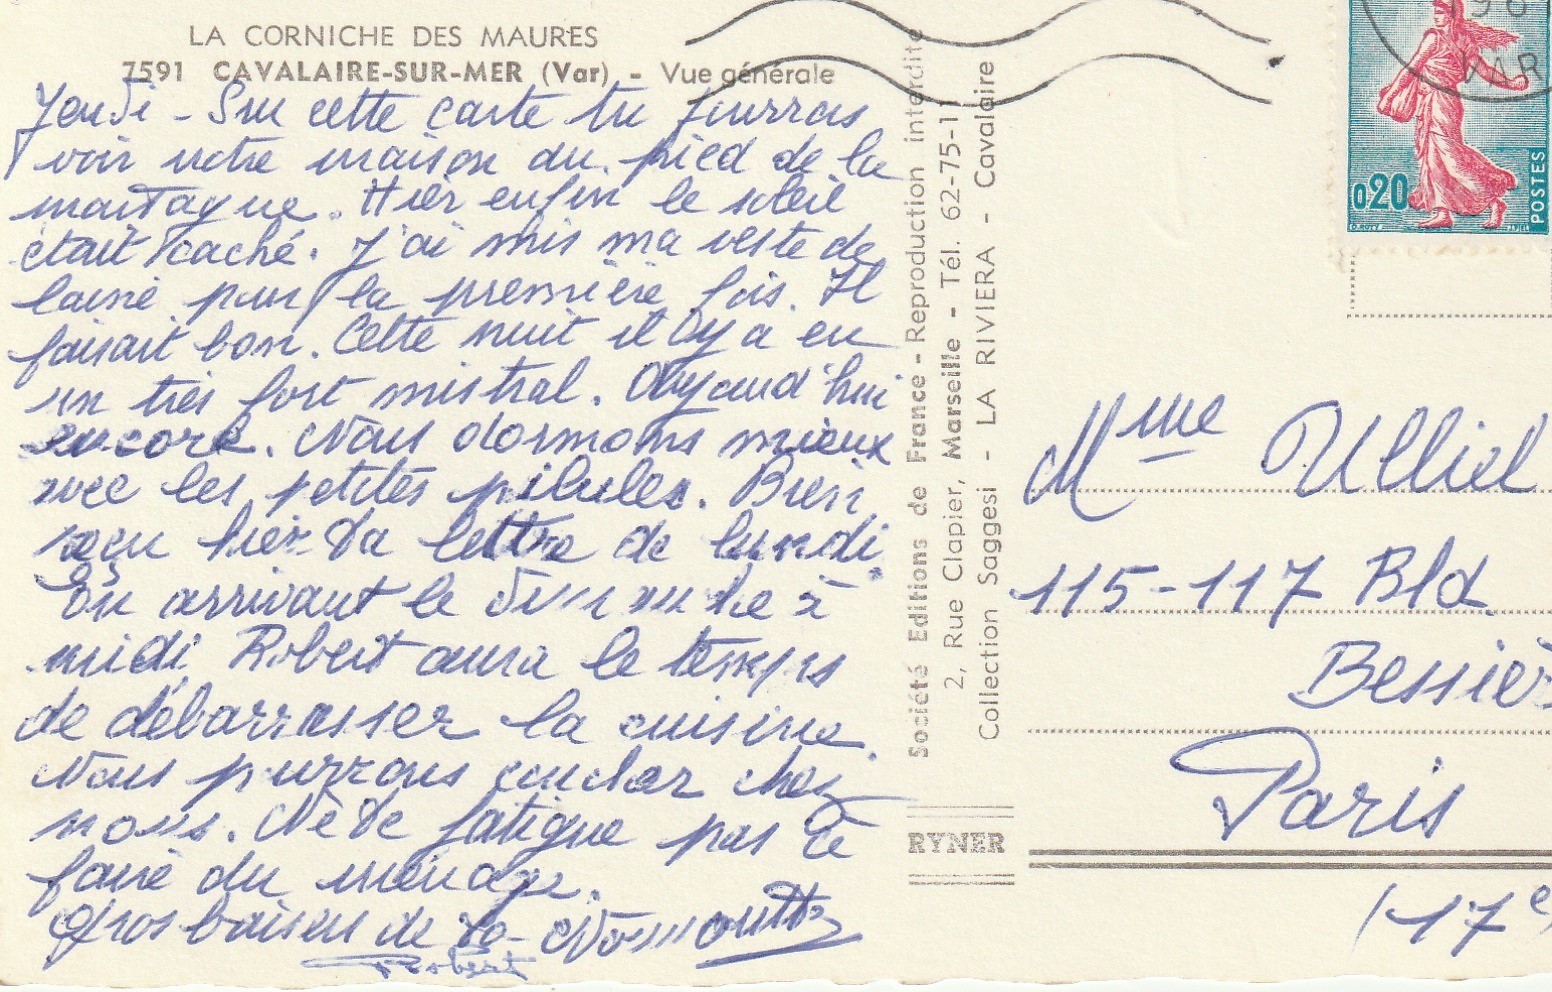 LA CORNICHE DES MAURES
7591 CAVALAIRE-SUR-MER (Var) - Vue générale
Jeudi - Sur cette carte tu pourras
voir notre maison au pied de la
montagne. Hier enfin le soleil
était caché. J'ai mis ma veste de
laine pour la première fois. Il
faisait bon. Cette nuit il y a eu
un très fort mistral. Aujourd'hui
encore. Nous dormons mieux
avec les petites pilules. Bien
reçu hier ta lettre de lundi.
En arrivant le dimanche à
midi Robert aura le temps
de débarrasser la cuisine.
Nous pourrons coucher chez
nous. Ne te fatigue pas à
faire du ménage.
Gros baisers de ta
Robert
Société Editions de France - Reproduction interdite
2, Rue Clapier, Marseille - Tél. 62-75-11
Collection Saggesi - LA RIVIERA - Cavalaire
RYNER
VAR
0,20
POSTES
Mme Ulliel
115-117 Bld.
Bessièr
Paris
(17e)